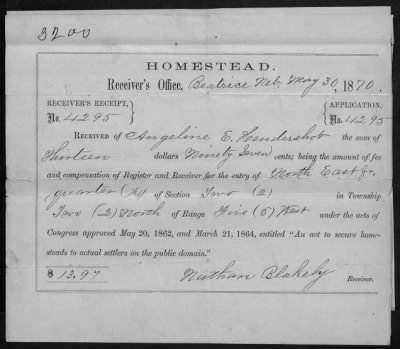 3200
HOMESTEAD.
Receiver's Office, Beatrice Neb, May 30, 1870.
RECEIVER'S RECEIPT, APPLICATION,
No. 4295 No. 4295
RECEIVED OF Angeline E. Hendershot the sum of
Thirteen dollars Ninety Seven cents; being the amount of fee
and compensation of Register and Receiver for the entry of North East fr.
quarter (¼) of Section Two (2) in Township
Two (2) North of Range Five (5) West under the acts of
Congress approved May 20, 1862, and March 21, 1864, entitled "An act to secure home-
steads to actual settlers on the public domain."
$ 13.97 Nathan Blakely Receiver.